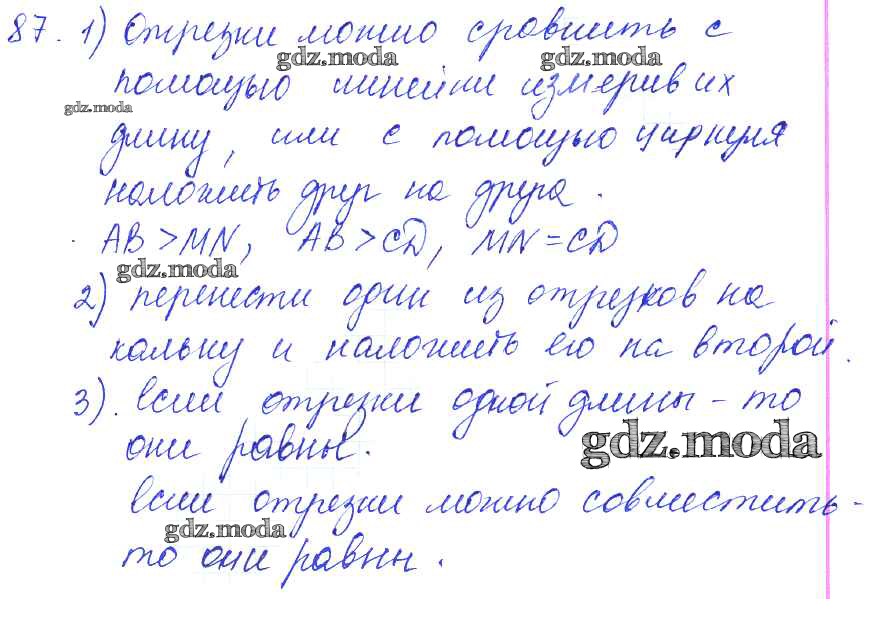 87. 1) Отрезки можно сравнить с
gdz.moda gdz.moda
помощью линейки измерив их
gdz.moda
длину, или с помощью циркуля
наложить друг на друга.
AB > MN, AB > CD, MN = CD
gdz.moda
2) перенести один из отрезков на
кальку и наложить его на второй.
3). Если отрезки одной длины – то
они равны.
gdz.moda
Если отрезки можно совместить –
gdz.moda
то они равны.